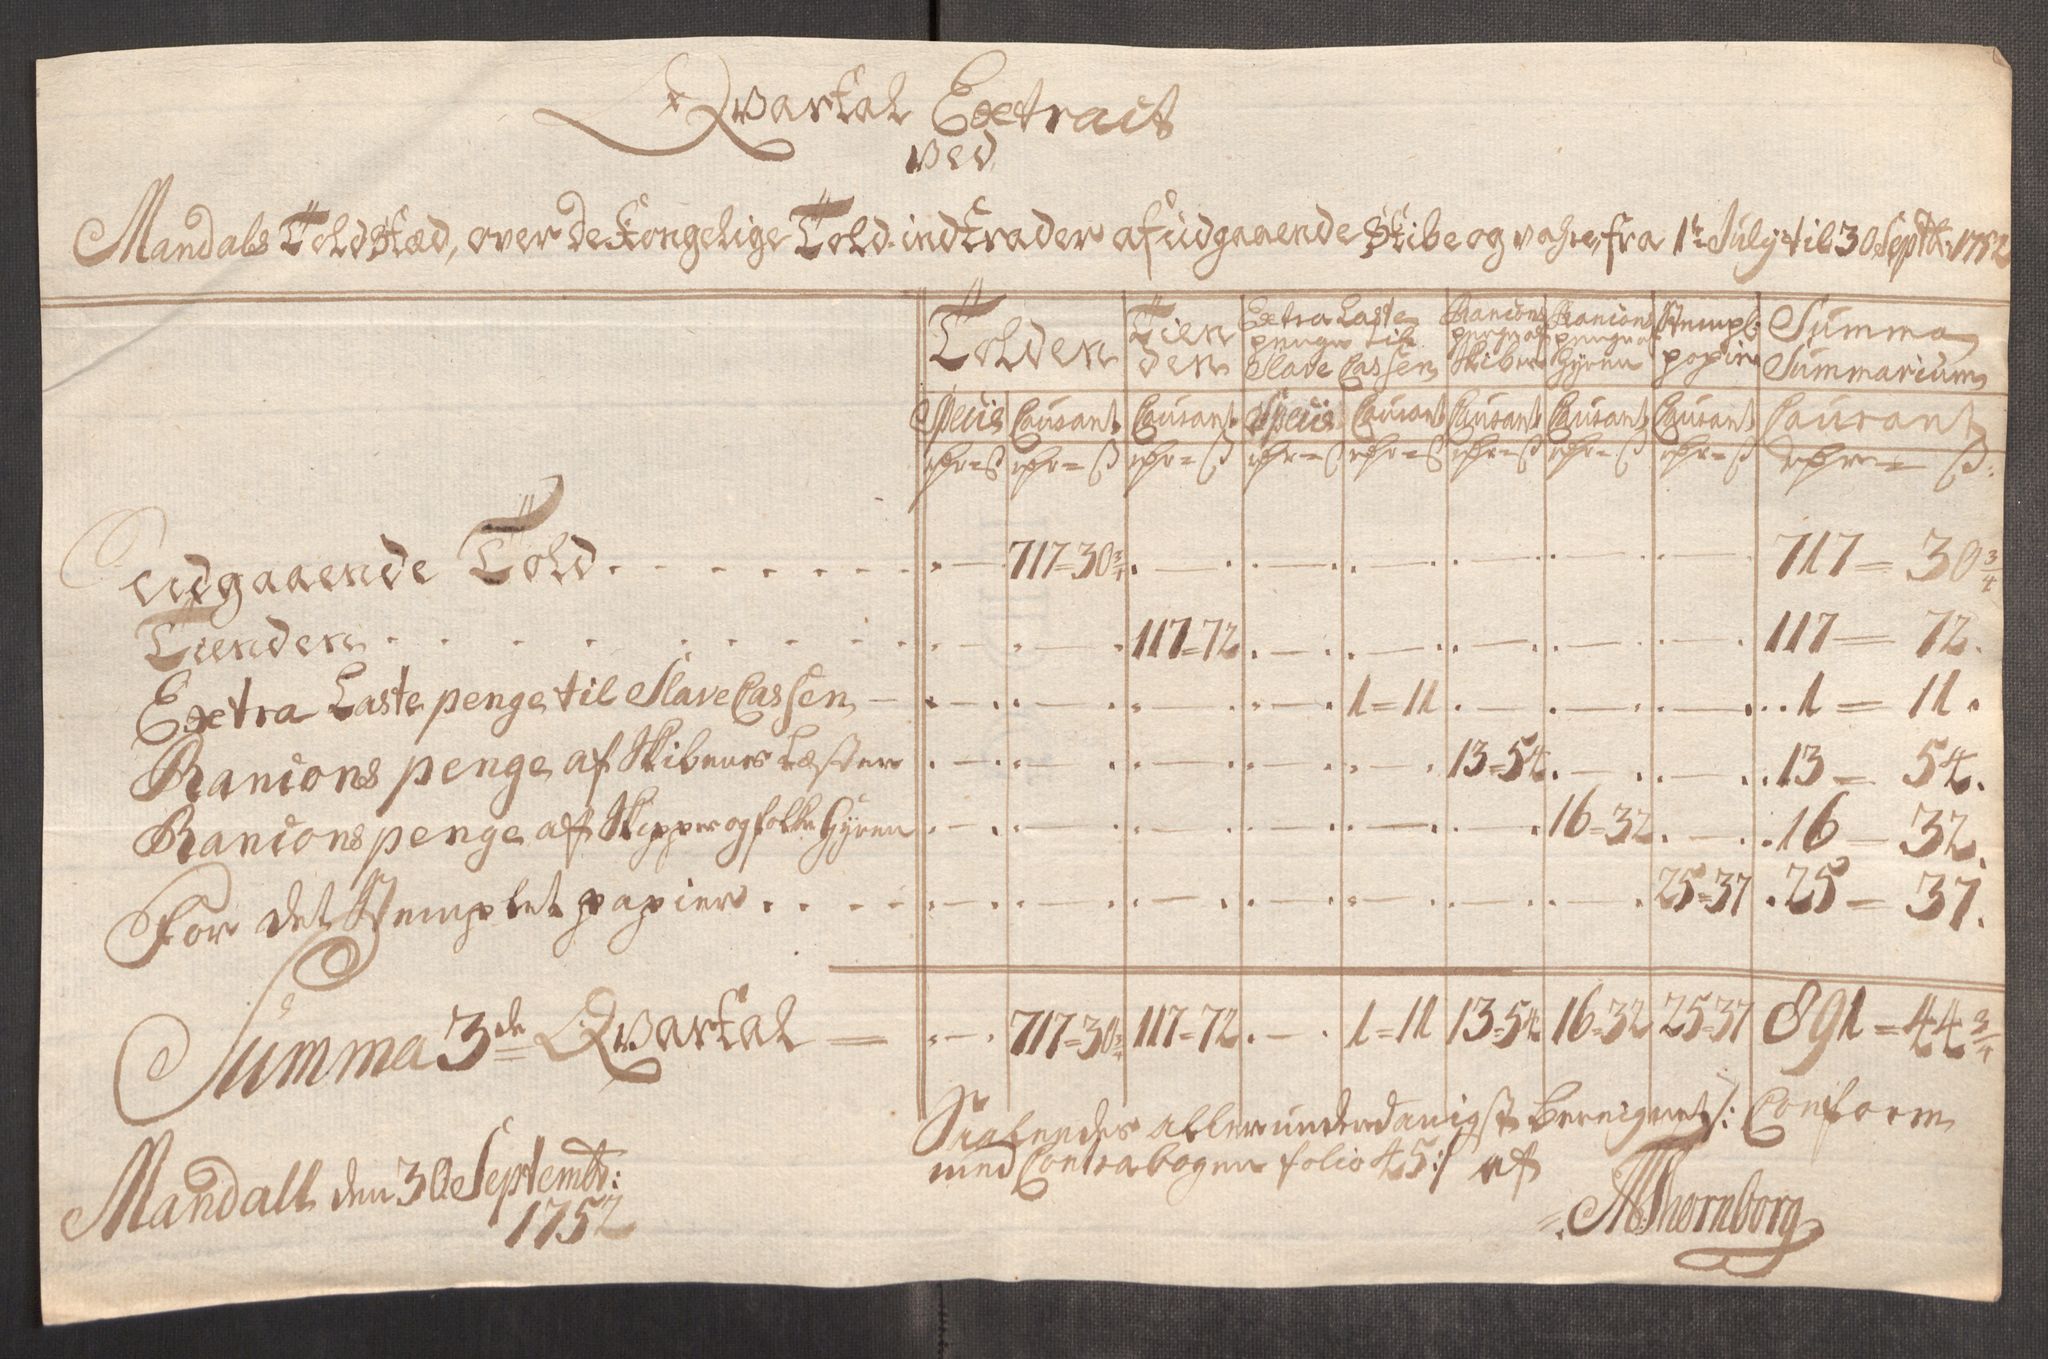 Qvartal Extract
ved
Mandals Toldstæd, over de Kongelige Told-indtrader af udgaaende Skibe og vahre, fra 1te July til 30 Septbr: 1752
Tolden | Tienden | Extra Laste penge til Slave Cassen | Rancions penge af Skibene | Rancions penge af Hyren | Stempl: papir | Summa Summarium
Specis | Courant | Courant | Specis | Courant | Courant | Courant | Courant | Courant
rdr = ß | rdr = ß | rdr = ß | rdr = ß | rdr = ß | rdr = ß | rdr = ß | rdr = ß | rdr = ß
Udgaaende Told . . . . . . . . 717=30 3/4 717 = 30 3/4
Tienden . . . . . . . . 117=72 117 = 72.
Extra Laste penge til Slave Cassen — 1=11 1 = 11.
Rancions penge af Skibenes Læster 13=54 13 = 54.
Rancions penge af Skipper og folke Hyren 16=32 16 = 32.
For det Stemplet papier . . . . 25=37 25 = 37.
Summa 3de Qvartal = 717=30 3/4 117=72 1=11 13=54 16=32 25=37 891 = 44 3/4
Saaledes allerunderdanigst beregnet /: Conform
med Contrabogen folio 45 :/ af
Mandall den 30 Septembr:
1752
Thornborg